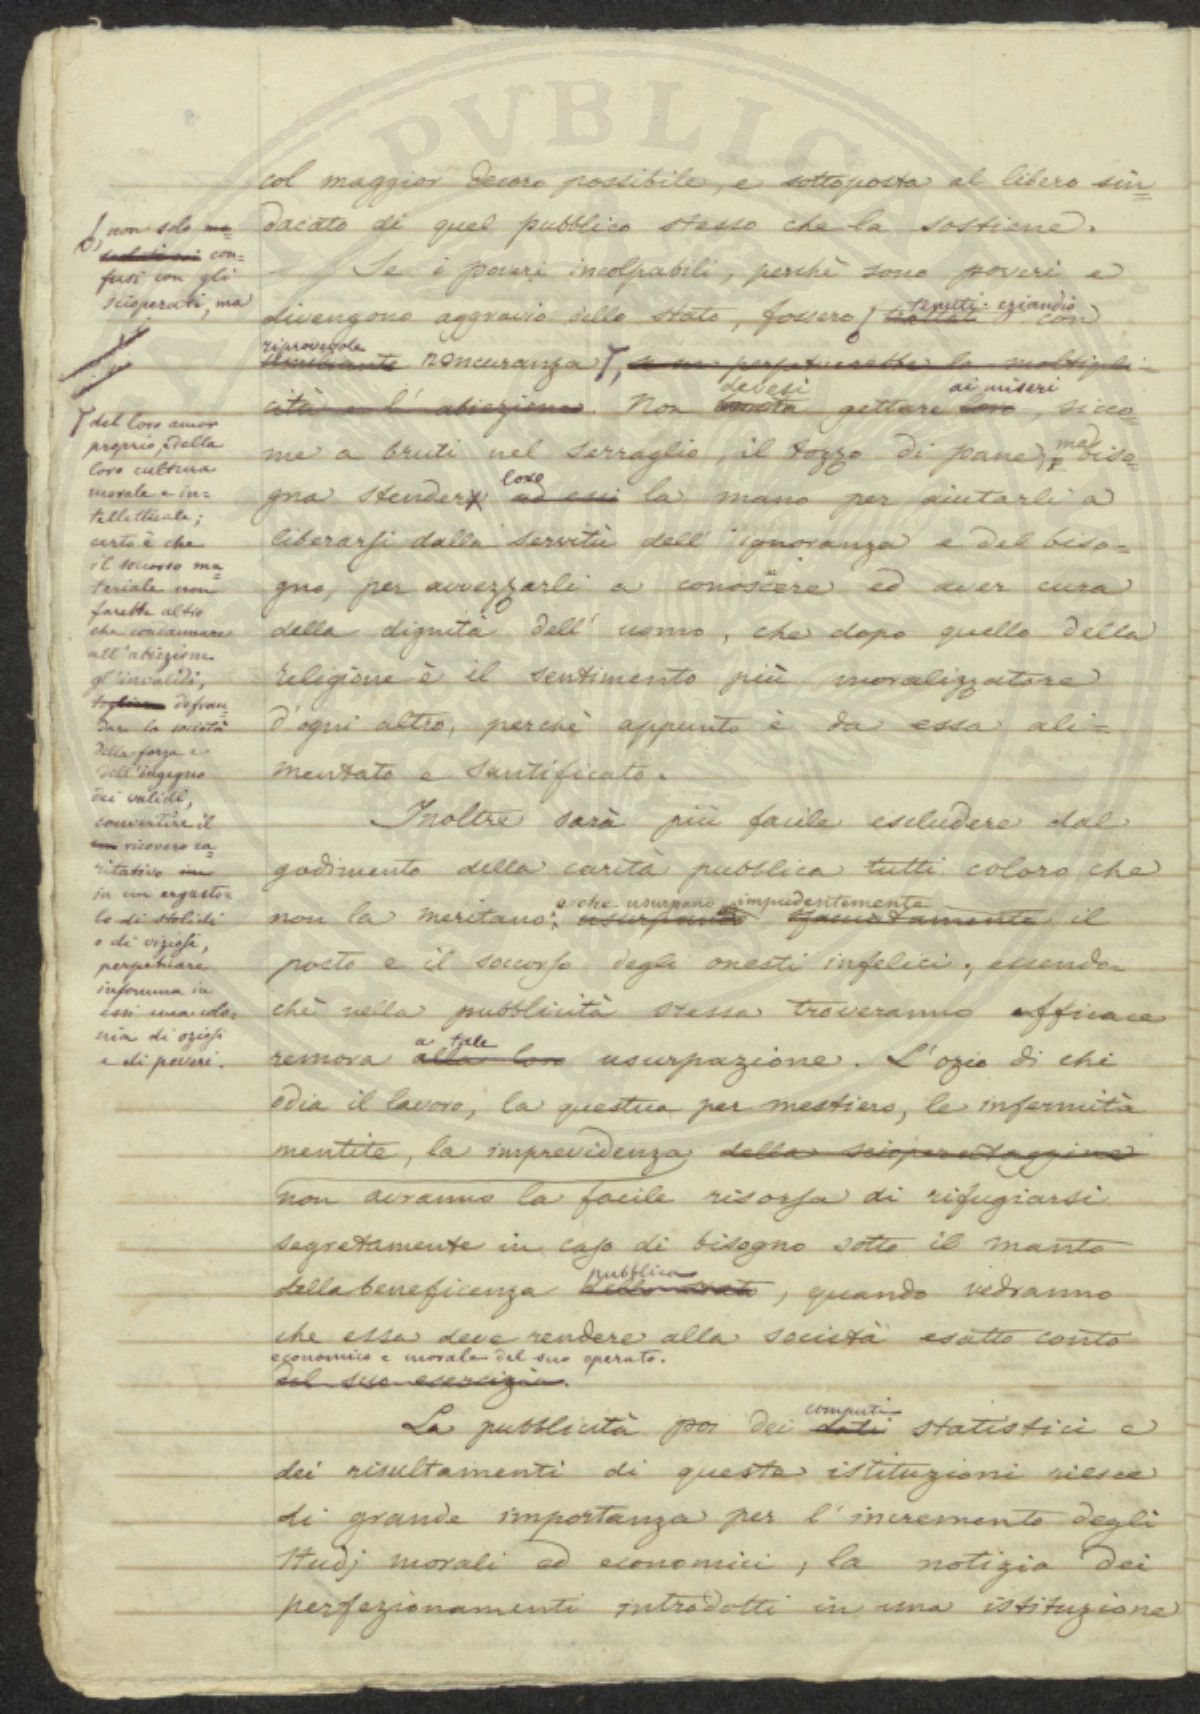 col maggior decoro possibile, e sottoposta al libero sin=
dacato di quel pubblico stesso che la sostiene.
Se i poveri incolpabili, perchè sono poveri e
divengono aggravio dello stato, fossero tenuti eziandio con
riprovevole noncuranza, se ne perpetuerebbe la moltipli=
cità e l'abiezione. Non devesi gettare ai miseri, sicco=
me a bruti nel serraglio, il tozzo di pane, ma biso=
gna stender loro ad essi la mano per aiutarli a
liberarsi dalla servitù dell'ignoranza e del biso=
gno, per avvezzarli a conoscere ed aver cura
della dignità dell'uomo, che dopo quello della
religione è il sentimento più moralizzatore
d'ogni altro, perchè appunto è da essa ali=
mentato e santificato.
Inoltre sarà più facile escludere dal
godimento della carità pubblica tutti coloro che
non la meritano: e che usurpano impudentemente usurpando il
posto e il soccorso degli onesti infelici; essendo=
chè nella pubblicità stessa troveranno efficace
remora a tale alla loro usurpazione. L'ozio di chi
odia il lavoro, la questua per mestiero, le infermità
mentite, la imprevidenza della scioperataggine
non avranno la facile risorsa di rifugiarsi
segretamente in caso di bisogno sotto il manto
della beneficenza pubblica dello stato, quando vedranno
che essa deve rendere alla società esatto conto
economico e morale del suo operato.
del suo esercizio.
La pubblicità poi dei computi dati statistici e
dei risultamenti di queste istituzioni riesce
di grande importanza per l'incremento degli
studj morali ed economici; la notizia dei
perfezionamenti introdotti in una istituzione
non solo
con=
fusi con gli
scioperati, ma
del loro amor
proprio, della
loro cultura
morale e in=
tellettuale;
certo è che
il soccorso ma=
teriale non
farebbe altro
che condannare
all'abiezione
gl'invalidi,
togliere defrau=
dare la società
della forza e
dell'ingegno
dei validi,
convertire il
ricovero ca=
ritativo
in un ergasto=
lo di stolidi
o di viziosi,
perpetuare
insomma in
essi una colo=
nia di oziosi
e di poveri.
PVBLICA